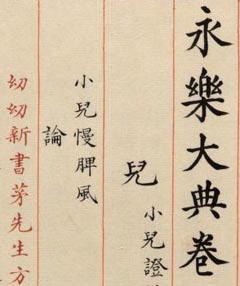 永樂大典卷
兒
小兒證
小兒慢脾風
論
幼幼新書茅先生方